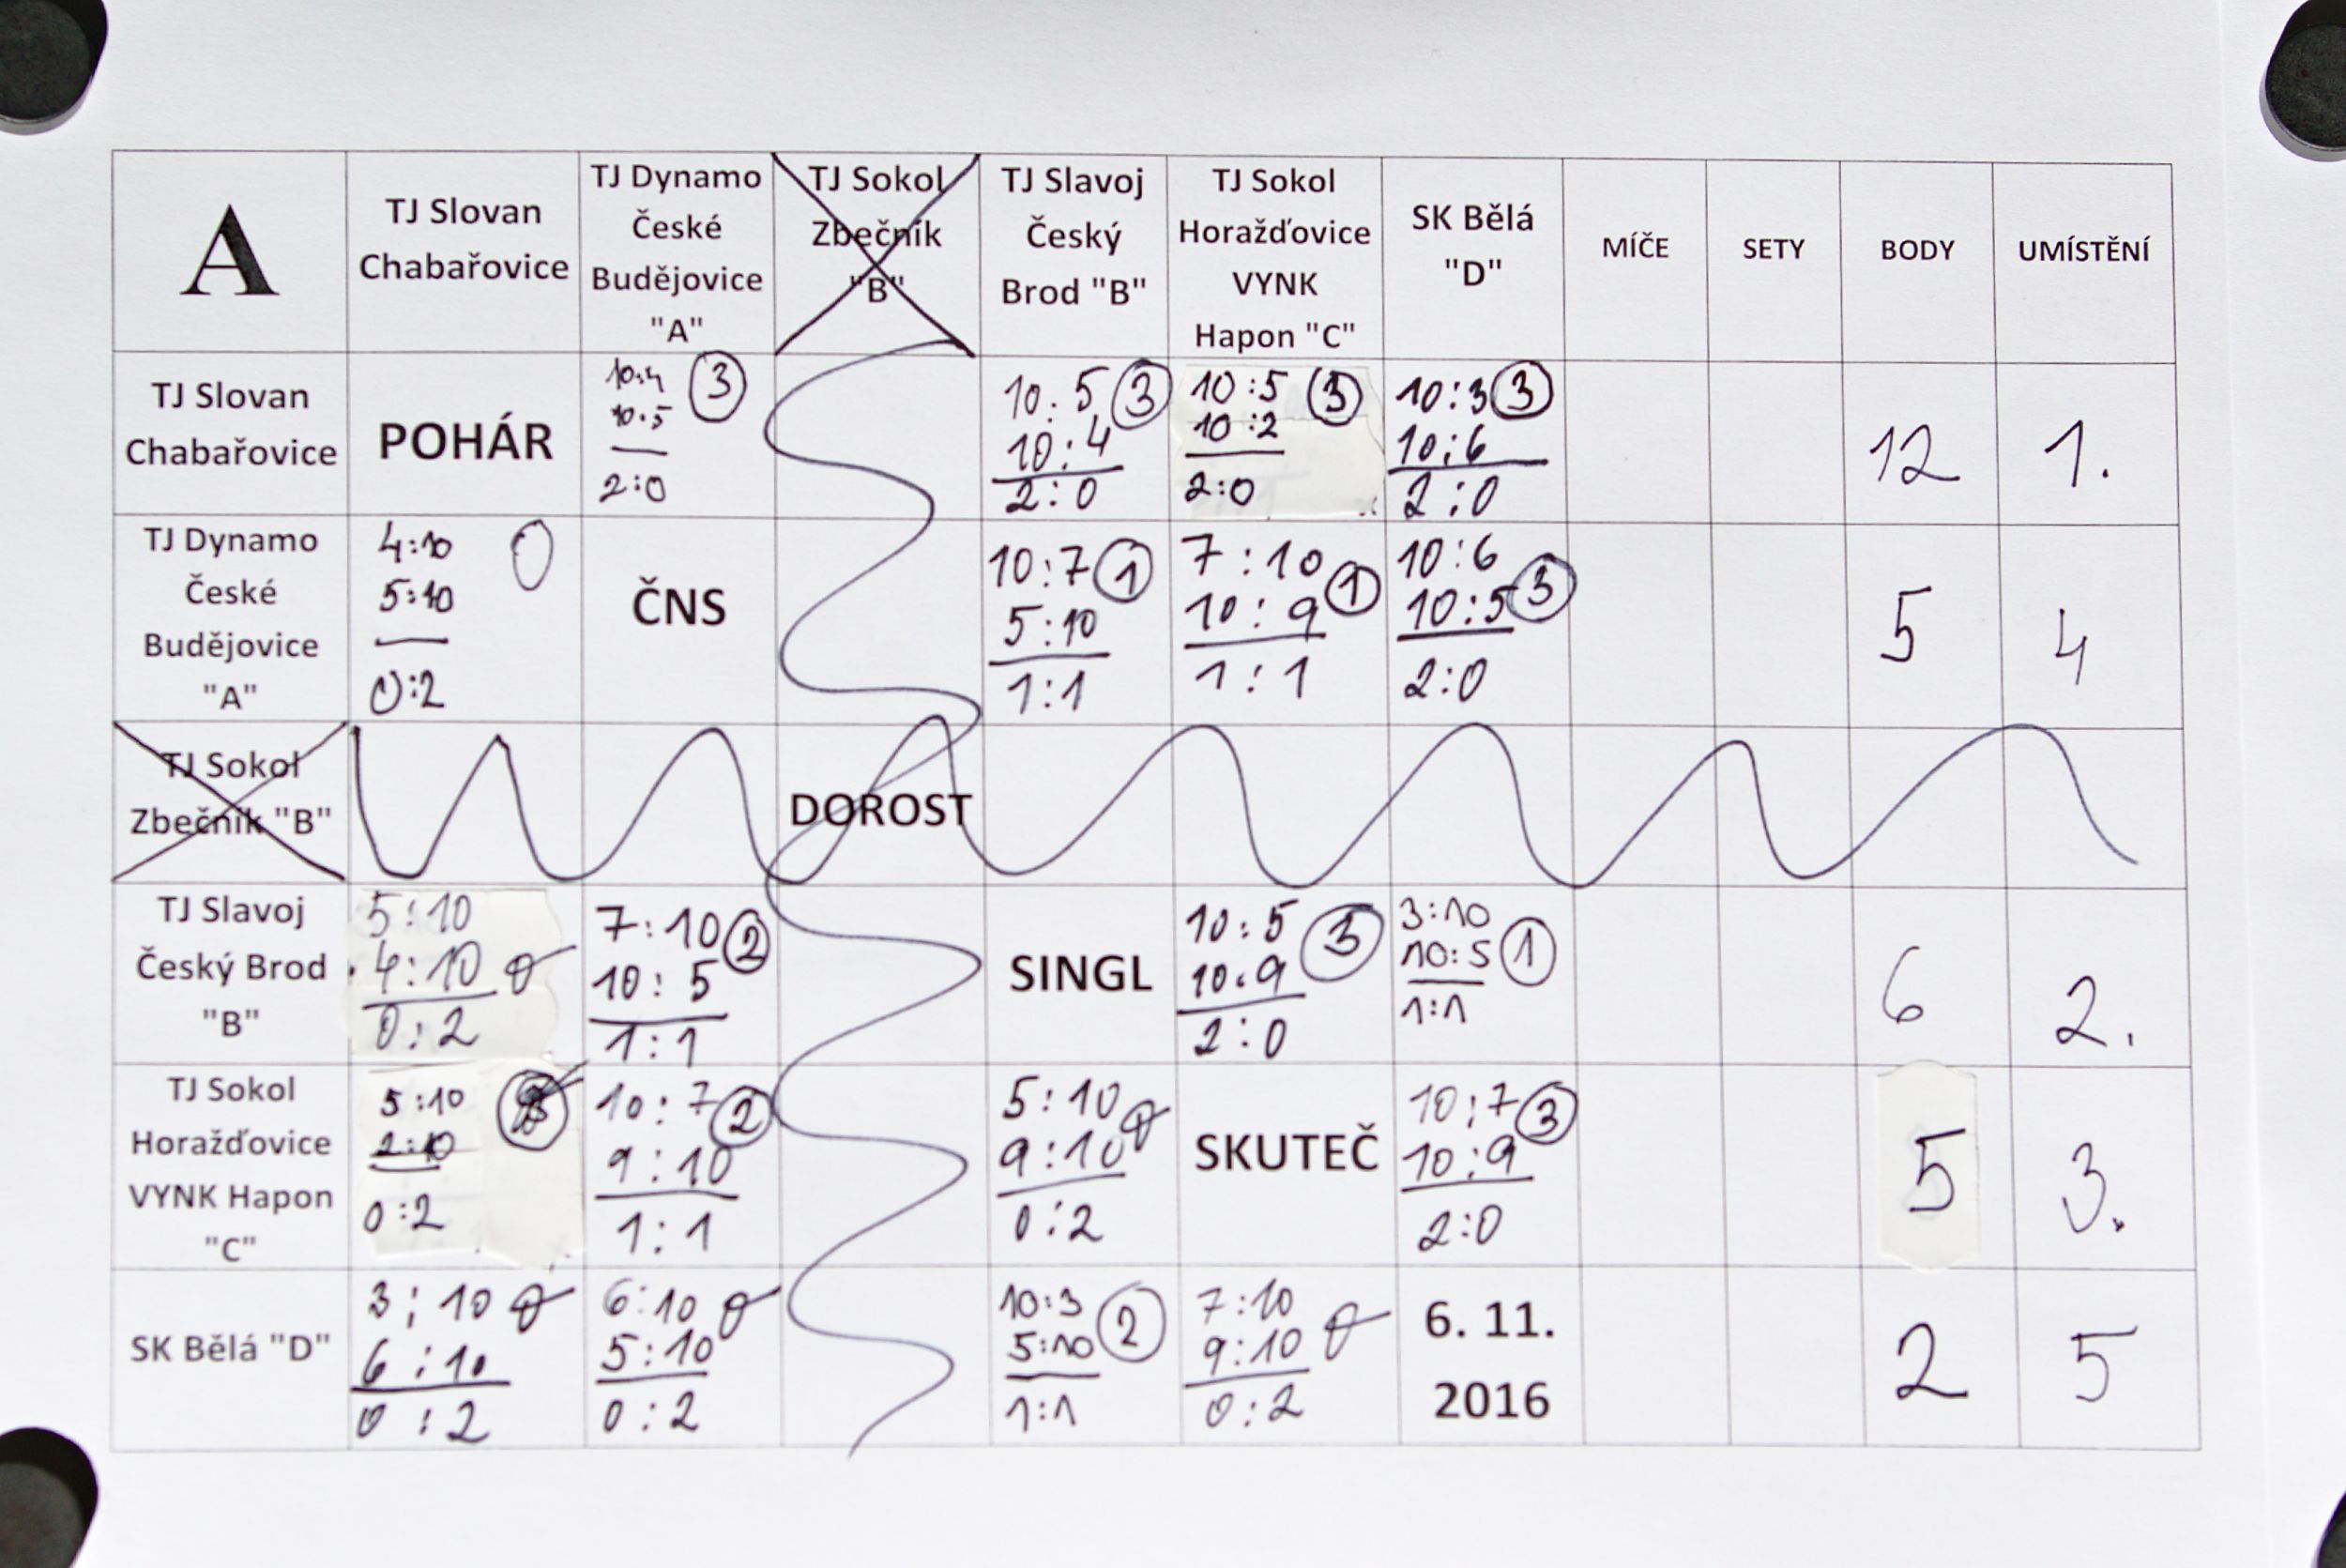 A
TJ Slovan
Chabařovice
TJ Dynamo
České
Budějovice
"A"
TJ Sokol
Zbečník
"B"
TJ Slavoj
Český
Brod "B"
TJ Sokol
Horažďovice
VYNK
Hapon "C"
SK Bělá
"D"
MÍČE
SETY
BODY
UMÍSTĚNÍ
TJ Slovan
Chabařovice
POHÁR
10:4 3
10:5
2:0
10:5 3
10:4
2:0
10:5 3
10:2
2:0
10:3 3
10:6
2:0
12
1.
TJ Dynamo
České
Budějovice
"A"
4:10 0
5:10
0:2
ČNS
10:7 1
5:10
1:1
7:10
10:9 1
1:1
10:6
10:5 3
2:0
5
4
TJ Sokol
Zbečník "B"
DOROST
TJ Slavoj
Český Brod
"B"
5:10
4:10 0
0:2
7:10 2
10:5
1:1
SINGL
10:5 3
10:9
2:0
3:10
10:5 1
1:1
6
2.
TJ Sokol
Horažďovice
VYNK Hapon
"C"
5:10
2:10
0:2
10:7 2
9:10
1:1
5:10 0
9:10
0:2
SKUTEČ
10:7 3
10:9
2:0
5
3.
SK Bělá "D"
3:10 0
6:10
0:2
6:10 0
5:10
0:2
10:3 2
5:10
1:1
7:10
9:10 0
0:2
6. 11.
2016
2
5